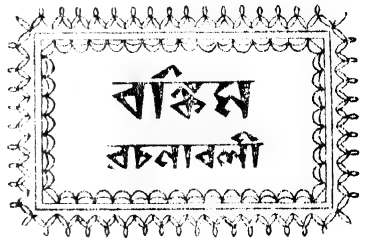 বঙ্কিম
রচনাবলী